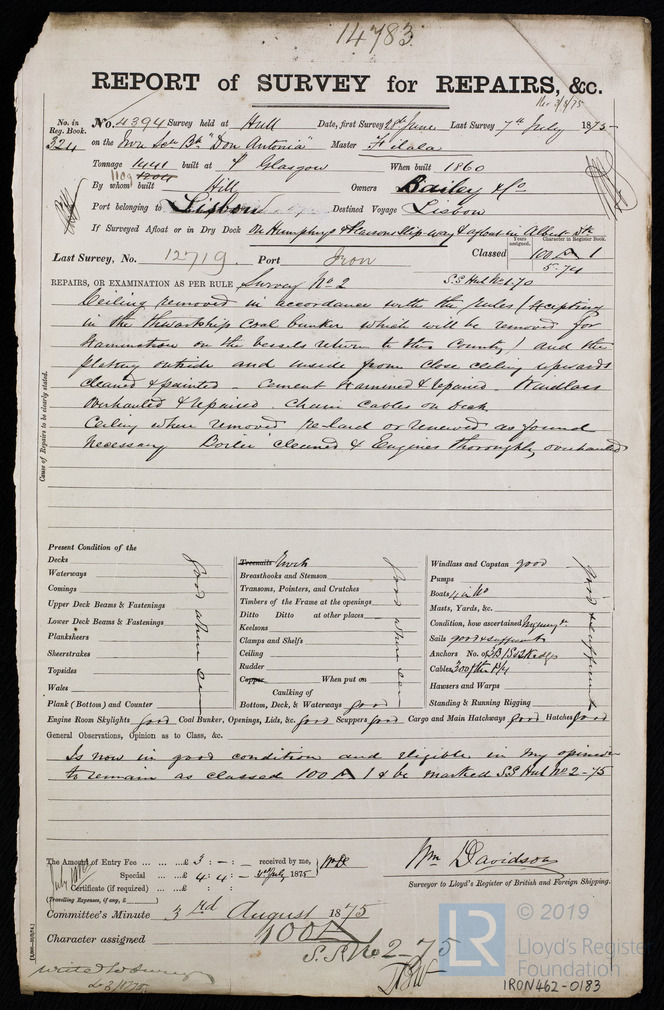 14783
REPORT of SURVEY for REPAIRS, &c.
3/8/75
No. in Reg. Book.
324
No. 4394 Survey held at Hull Date, first Survey 28th June Last Survey 7th July 1875
on the "Don Antonia" Master
Tonnage 1441 built at Glasgow When built 1860
1109
By whom built Hill Owners Bailey & Co
Port belonging to Lisbon Destined Voyage Lisbon
If Surveyed Afloat or in Dry Dock On Humphrys & Pearsons Slip-way & afloat in Albert Dk
Years assigned. Character in Register Book.
Last Survey, No. 12719. Port Iron Classed 100 A 1
5.74
REPAIRS, OR EXAMINATION AS PER RULE Survey No 2 S.S Hul No1.70
Cause of Repairs to be clearly stated.
Ceiling removed in accordance with the rules (excepting
in the thwartship Coal bunker which will be removed for
Examination on the vessels return to this Country) and the
plating outside and inside from close ceiling upwards
cleaned & painted - cement examined & repaired. Windlass
overhauled & repaired chain cables on deck
Ceiling where removed re-laid or renewed as found
necessary Boiler cleaned & Engines thoroughly overhauled
Present Condition of the
Decks
Waterways
Comings
Upper Deck Beams & Fastenings
Lower Deck Beams & Fastenings
Planksheers
Sheerstrakes
Topsides
Wales
Plank (Bottom) and Counter
good where seen
Treenails
Breasthooks and Stemson
Transoms, Pointers, and Crutches
Timbers of the Frame at the openings
Ditto Ditto at other places
Keelsons
Clamps and Shelfs
Ceiling
Rudder
Copper When put on
Caulking of
Bottom, Deck, & Waterways good
good where seen
Windlass and Capstan good
Pumps
Boats 4 in No
Masts, Yards, &c.
Condition, how ascertained
Sails good & sufficient
Anchors No. of 3B 1S 2Kedgs
Cables 300 fthm
Hawsers and Warps
Standing & Running Rigging
good & sufficient
Engine Room Skylights good Coal Bunker, Openings, Lids, &c. good Scuppers good Cargo and Main Hatchways good Hatches good
General Observations, Opinion as to Class, &c.
Is now in good condition and eligible in my opinion
to remain as classed 100 A 1 & be marked S.S Hul No 2-75
The Amount of Entry Fee ... ... ... £ 3 : - : - received by me,
Special ... ... £ 4 : 4 : - July 1875
Certificate (if required) ... £ : :
(Travelling Expenses, if any, £ )
Wm Davidson
Surveyor to Lloyd's Register of British and Foreign Shipping.
Committee's Minute 3rd August 1875
Character assigned 100 A
S.S No 2-75
LR
© 2019
Lloyd's Register
Foundation
IRON462-0183